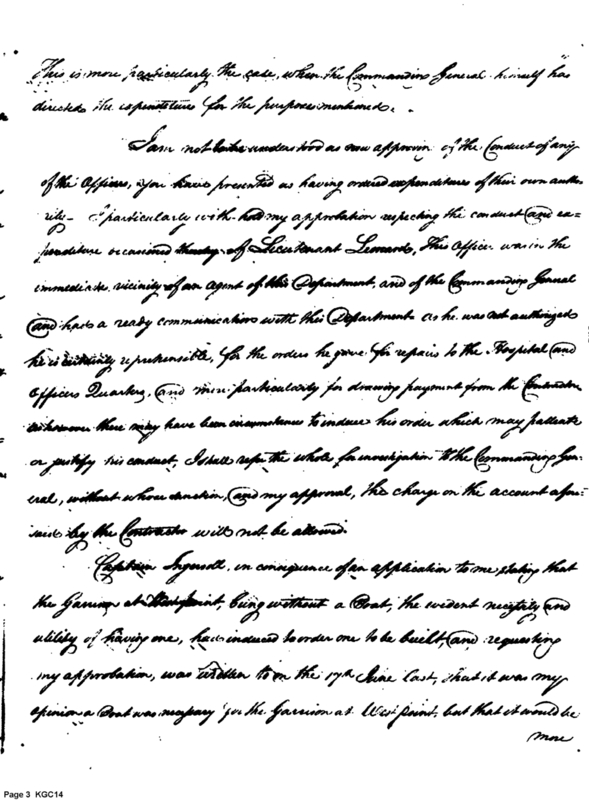 This is more particularly the case, when the Commanding General himself has
directed the expenditure for the purposes mentioned.
I am not to be understood as now approving of the Conduct of any
of the Officers, you have presented as having ordered expenditures of their own autho-
rity - I particularly with-hold my approbation respecting the conduct and ex=
penditure occasioned thereby of Lieutenant Leonard, This Officer was in the
immediate vicinity of an agent of this Department, and of the Commanding General
and had a ready communication with this Department as he was not authorized
he is certainly reprehensible, for the orders he gave for repairs to the Hospital and
Officers Quarters, and more particularly for drawing payment from the Contractor
as however there may have been circumstances to induce his order which may palleate
or justify his conduct, I shall refer the whole for investigation to the Commanding Gen-
eral, without whose sanction, and my approval, the charge on the account afore-
said by the Contractor will not be allowed.
Captain Ingersoll, in consequence of an application to me stating that
the Garrison at West point, being without a Boat, the evident necessity and
utility of having one, had induced to order one to be built, and requesting
my approbation, was written to on the 17th June last, that it was my
opinion a Boat was necessary for the Garrison at West point, but that it would be
more
Page 3 KGC14